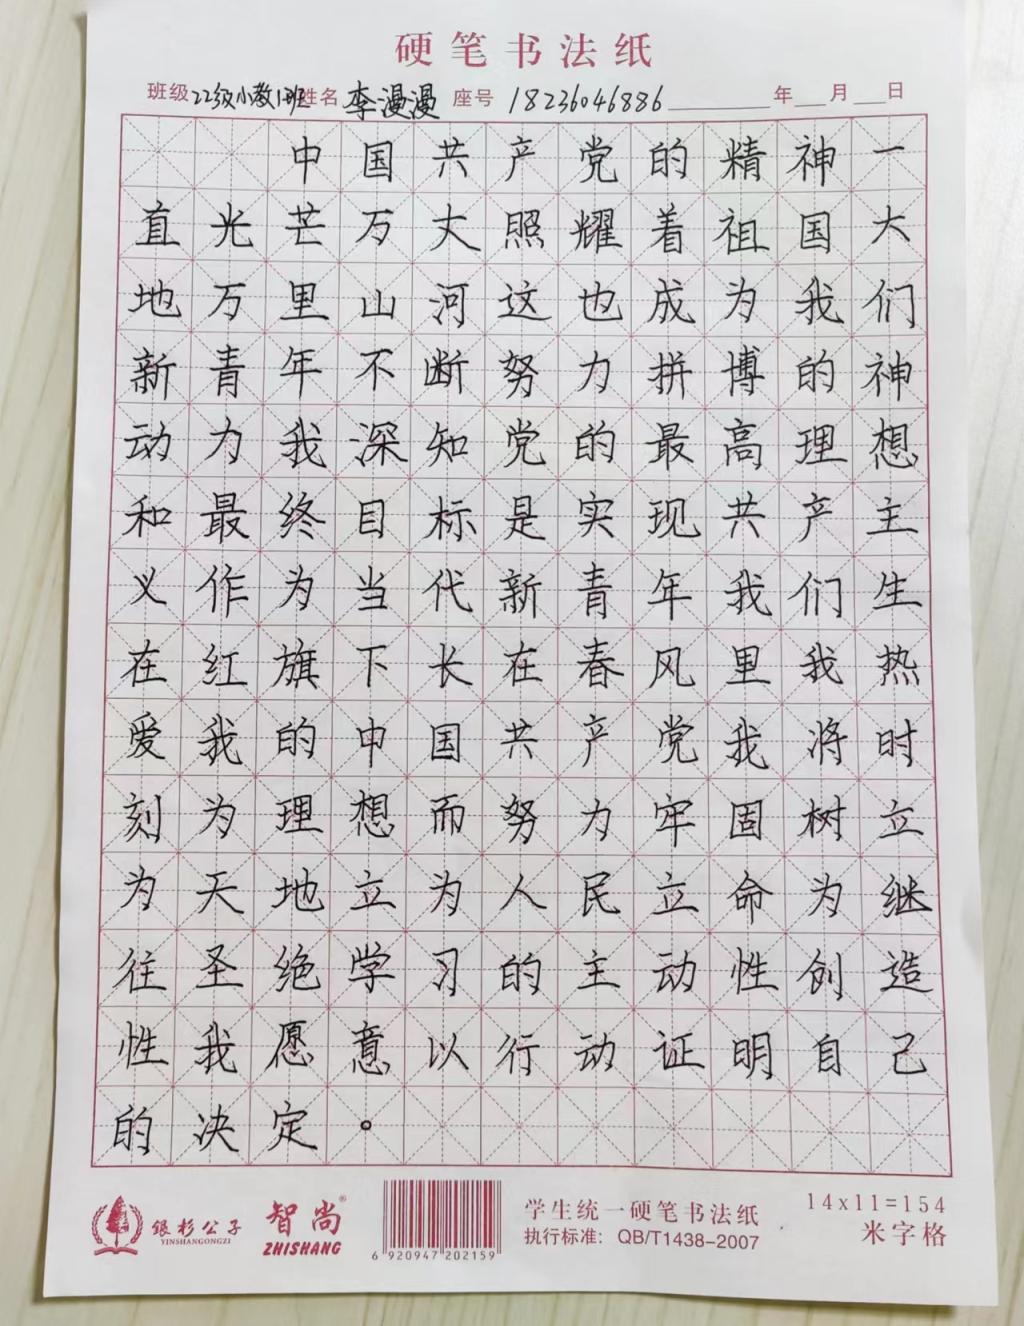 硬笔书法纸
班级 22级小教1班 姓名 李漫漫 座号 18236046886 年 月 日
中国共产党的精神一
直光芒万丈照耀着祖国大
地万里山河这也成为我们
新青年不断努力拼博的神
动力我深知党的最高理想
和最终目标是实现共产主
义作为当代新青年我们生
在红旗下长在春风里我热
爱我的中国共产党我将时
刻为理想而努力牢固树立
为天地立为人民立命为继
往圣绝学习的主动性创造
性我愿意以行动证明自己
的决定。
银杉公子
YINSHANGONGZI
智尚®
ZHISHANG
6 920947 202159
学生统一硬笔书法纸
执行标准: QB/T1438-2007
14x11=154
米字格